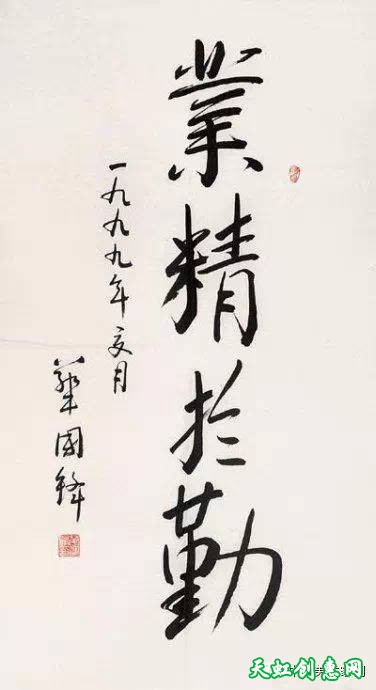 業精於勤
一九九九年 月
華國鋒
天虹创意网